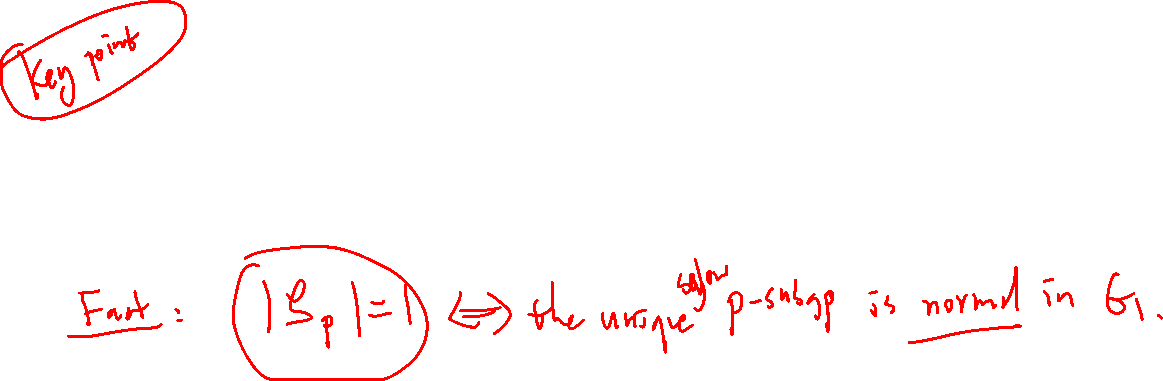 Key point
Fact: |S_p| = 1 ⟺ the unique sylow p-subgp is normal in G.